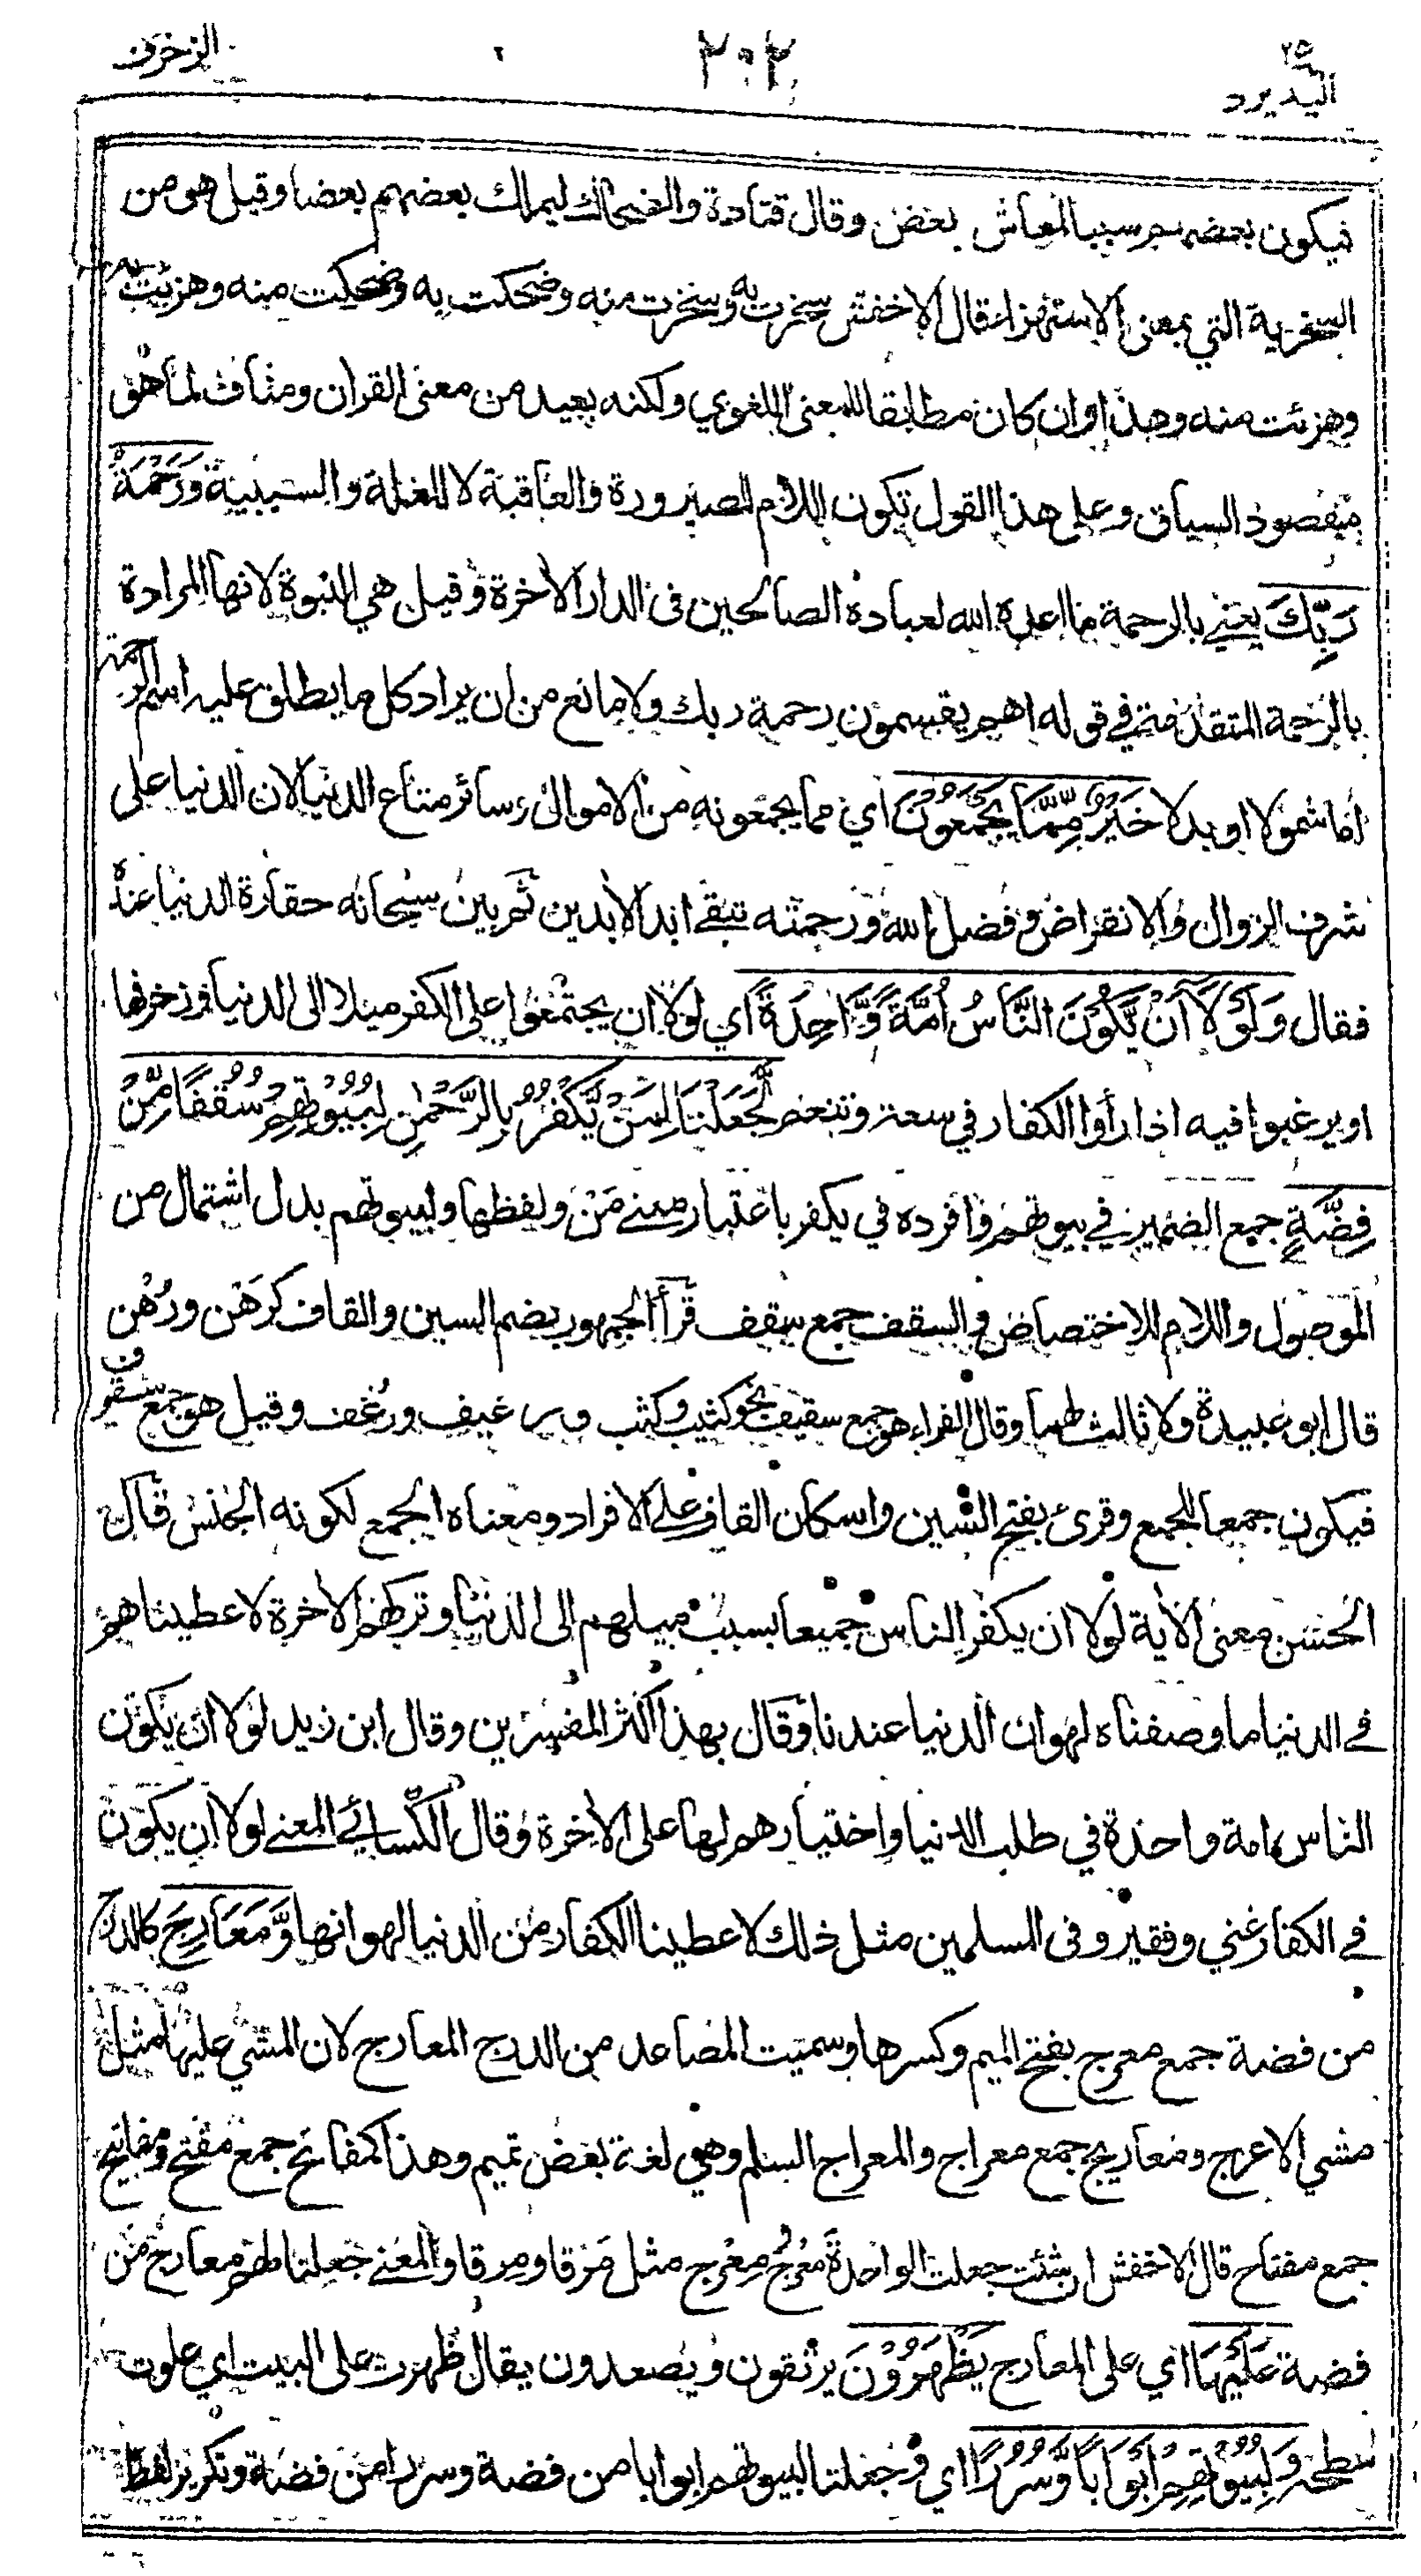 ٢٥
اليه يرد
٢٠٢
الزخرف
فيكون بعضهم سببا لمعاش بعض وقال قتادة والضحاك ليملك بعضهم بعضا وقيل هو من
السخرية التي بمعنى الاستهزاء قال الاخفش سخرت به وسخرت منه وضحكت به وضحكت منه وهزئت به
وهزئت منه وهذا وان كان مطابقا للمعنى اللغوي ولكنه بعيد من معنى القران ومناف لما هو
مقصود السياق وعلى هذا القول تكون اللام للصيرورة والعاقبة لا للعلة والسببية وَرَحْمَةُ
رَبِّكَ يعني بالرحمة ما اعده الله لعباده الصالحين فى الدار الاخرة وقيل هي النبوة لانها المرادة
بالرحمة المتقدمة في قوله اهم يقسمون رحمة ربك ولا مانع من ان يراد كل ما يطلق عليه اسم الرحمة
اما شمولا او بدلا خَيْرٌ مِّمَّا يَجْمَعُوْنَ اي مما يجمعونه من الاموال وسائر متاع الدنيا لان الدنيا على
شرف الزوال والانقراض وفضل الله ورحمته تبقى ابد الابدين ثم بين سبحانه حقارة الدنيا عنده
فقال وَلَوْلَا اَنْ يَّكُوْنَ النَّاسُ اُمَّةً وَّاحِدَةً اي لولا ان يجتمعوا على الكفر ميلا الى الدنيا وزخرفها
او يرغبوا فيه اذا رأوا الكفار في سعة وتنعم لَّجَعَلْنَا لِمَنْ يَّكْفُرُ بِالرَّحْمٰنِ لِبُيُوْتِهِمْ سُقُفًا مِّنْ
فِضَّةٍ جمع الضمير في بيوتهم وافرده في يكفر باعتبار معنى مَنْ ولفظها ولبيوتهم بدل اشتمال من
الموصول واللام للاختصاص والسقف جمع سقف قرأ الجمهور بضم السين والقاف كرَهْن ورُهُن
قال ابو عبيدة ولا ثالث لهما وقال الفراء هو جمع سقيف نحو كثيب وكثب و رغيف ورُغُف وقيل هو جمع سقوف
فيكون جمعا للجمع وقرئ بفتح السين واسكان القاف على الافراد ومعناه الجمع لكونه الجنس قال
الحسن معنى الاية لولا ان يكفر الناس جميعا بسبب ميلهم الى الدنيا وتركهم الاخرة لاعطيناهم
في الدنيا ما وصفناه لهوان الدنيا عندنا وقال بهذا اكثر المفسرين وقال ابن زيد لولا ان يكون
الناس امة واحدة في طلب الدنيا واختيارهم لها على الاخرة وقال الكسائي المعنى لولا ان يكون
في الكفار غني وفقير وفى المسلمين مثل ذلك لاعطينا الكفار من الدنيا لهوانها وَّمَعَارِجَ كالدرج
من فضة جمع معرج بفتح الميم وكسرها وسميت المصاعد من الدرج المعارج لان المشي عليها مثل
مشي الاعرج ومعاريج جمع معراج والمعراج السلم وهي لغة بعض تميم وهذا كمفاتح جمع مفتح ومفاتيح
جمع مفتاح قال الاخفش ان شئت جعلت الواحدة مَعْرَج مِعْرَج مثل مَرْقا ومِرقا والمعنى جعلنا لهم معارج من
فضة عَلَيْهَا اي على المعارج يَظْهَرُوْنَ يرتقون ويصعدون يقال ظهرت على البيت اي علوت
سطحه وَلِبُيُوْتِهِمْ اَبْوَابًا وَّسُرُرًا اي وجعلنا لبيوتهم ابوابا من فضة وسررا من فضة وتكرير لفظ